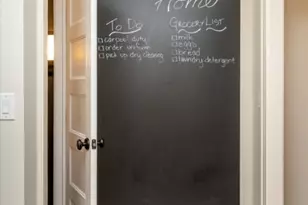 Home
To Do
carpool duty
order uniform
pick up dry cleaning
Grocery List
milk
eggs
bread
laundry detergent